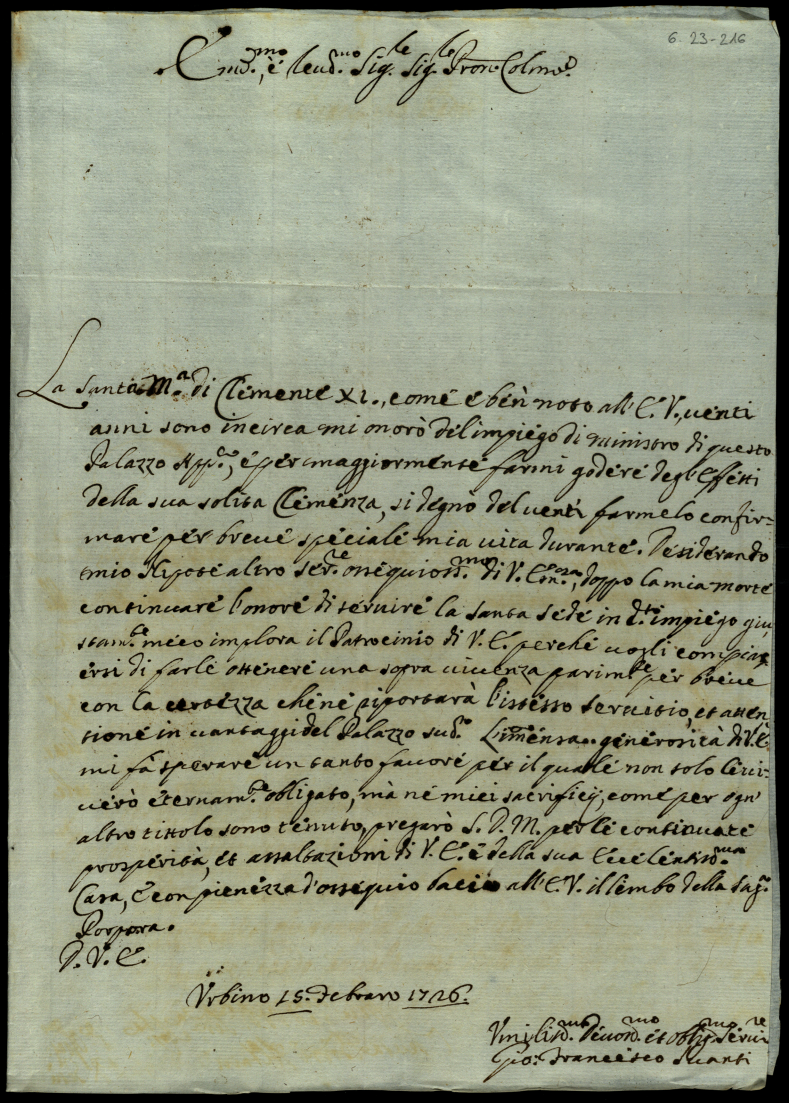 6. 23-216
Em.mo, è Reud.mo Sig.re Sig.re Pron. Colmo
La Santa M.a di Clemente XI., come è ben noto all'E.V., uenti
anni sono incirca mi onorò del impiego di ministro di questo
Palazzo App.co, è per maggiormente farmi godere degl'effetti
della sua solita Clemenza, si degnò del uenti farmelo confir=
mare per breue speciale mia uita durante. Desiderando
mio Nipote altro ser.re ossequioss.mo di V. Em.nza, doppo la mia morte
continuare l'onore di seruire la Santa Sede in d.to impiego giu,
stam.te meco implora il Patrocinio di V.E. perche uogli compiac
ersi di farle ottenere una sopra uiuenza parim.te per breue
con la certezza che ne riportarà l'istesso seruitio, et atten
tione in uantaggi del Palazzo sud.o L'imensa generosità di V.E.
mi fà sperare un tanto fauore per il quale non solo le ui-
uerò eternam.te obligato, mà ne miei sacrificij, come per ogn'
altro titolo sono tenuto, pregarò S.D.M. per le continuate
prosperità, et assaltazioni di V.E. è della sua Eccelentiss.ma
Casa, è con pienezza d'ossequio bacio all'E.V. il lembo della Sag.a
Porpora.
D.V.E.
Urbino 15. Febraro 1726.
Vmiliss.mo Deuot.mo et oblig.mo Seruire
Gio: Francesco